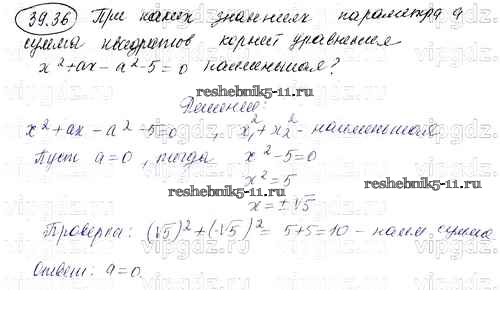 39.36 При каких значениях параметра а
сумма квадратов корней уравнения
x²+ax-a²-5=0 наименьшая?
Решение:
reshebnik5-11.ru
x²+ax-a²-5=0, x₁²+x₂² - наименьшая
Пусть a=0, тогда x²-5=0
reshebnik5-11.ru
x²=5
reshebnik5-11.ru
x=±√5
Проверка: (√5)²+(-√5)²= 5+5=10 - наим. сумма
reshebnik5-11.ru
Ответ: a=0.
vipgdz.com